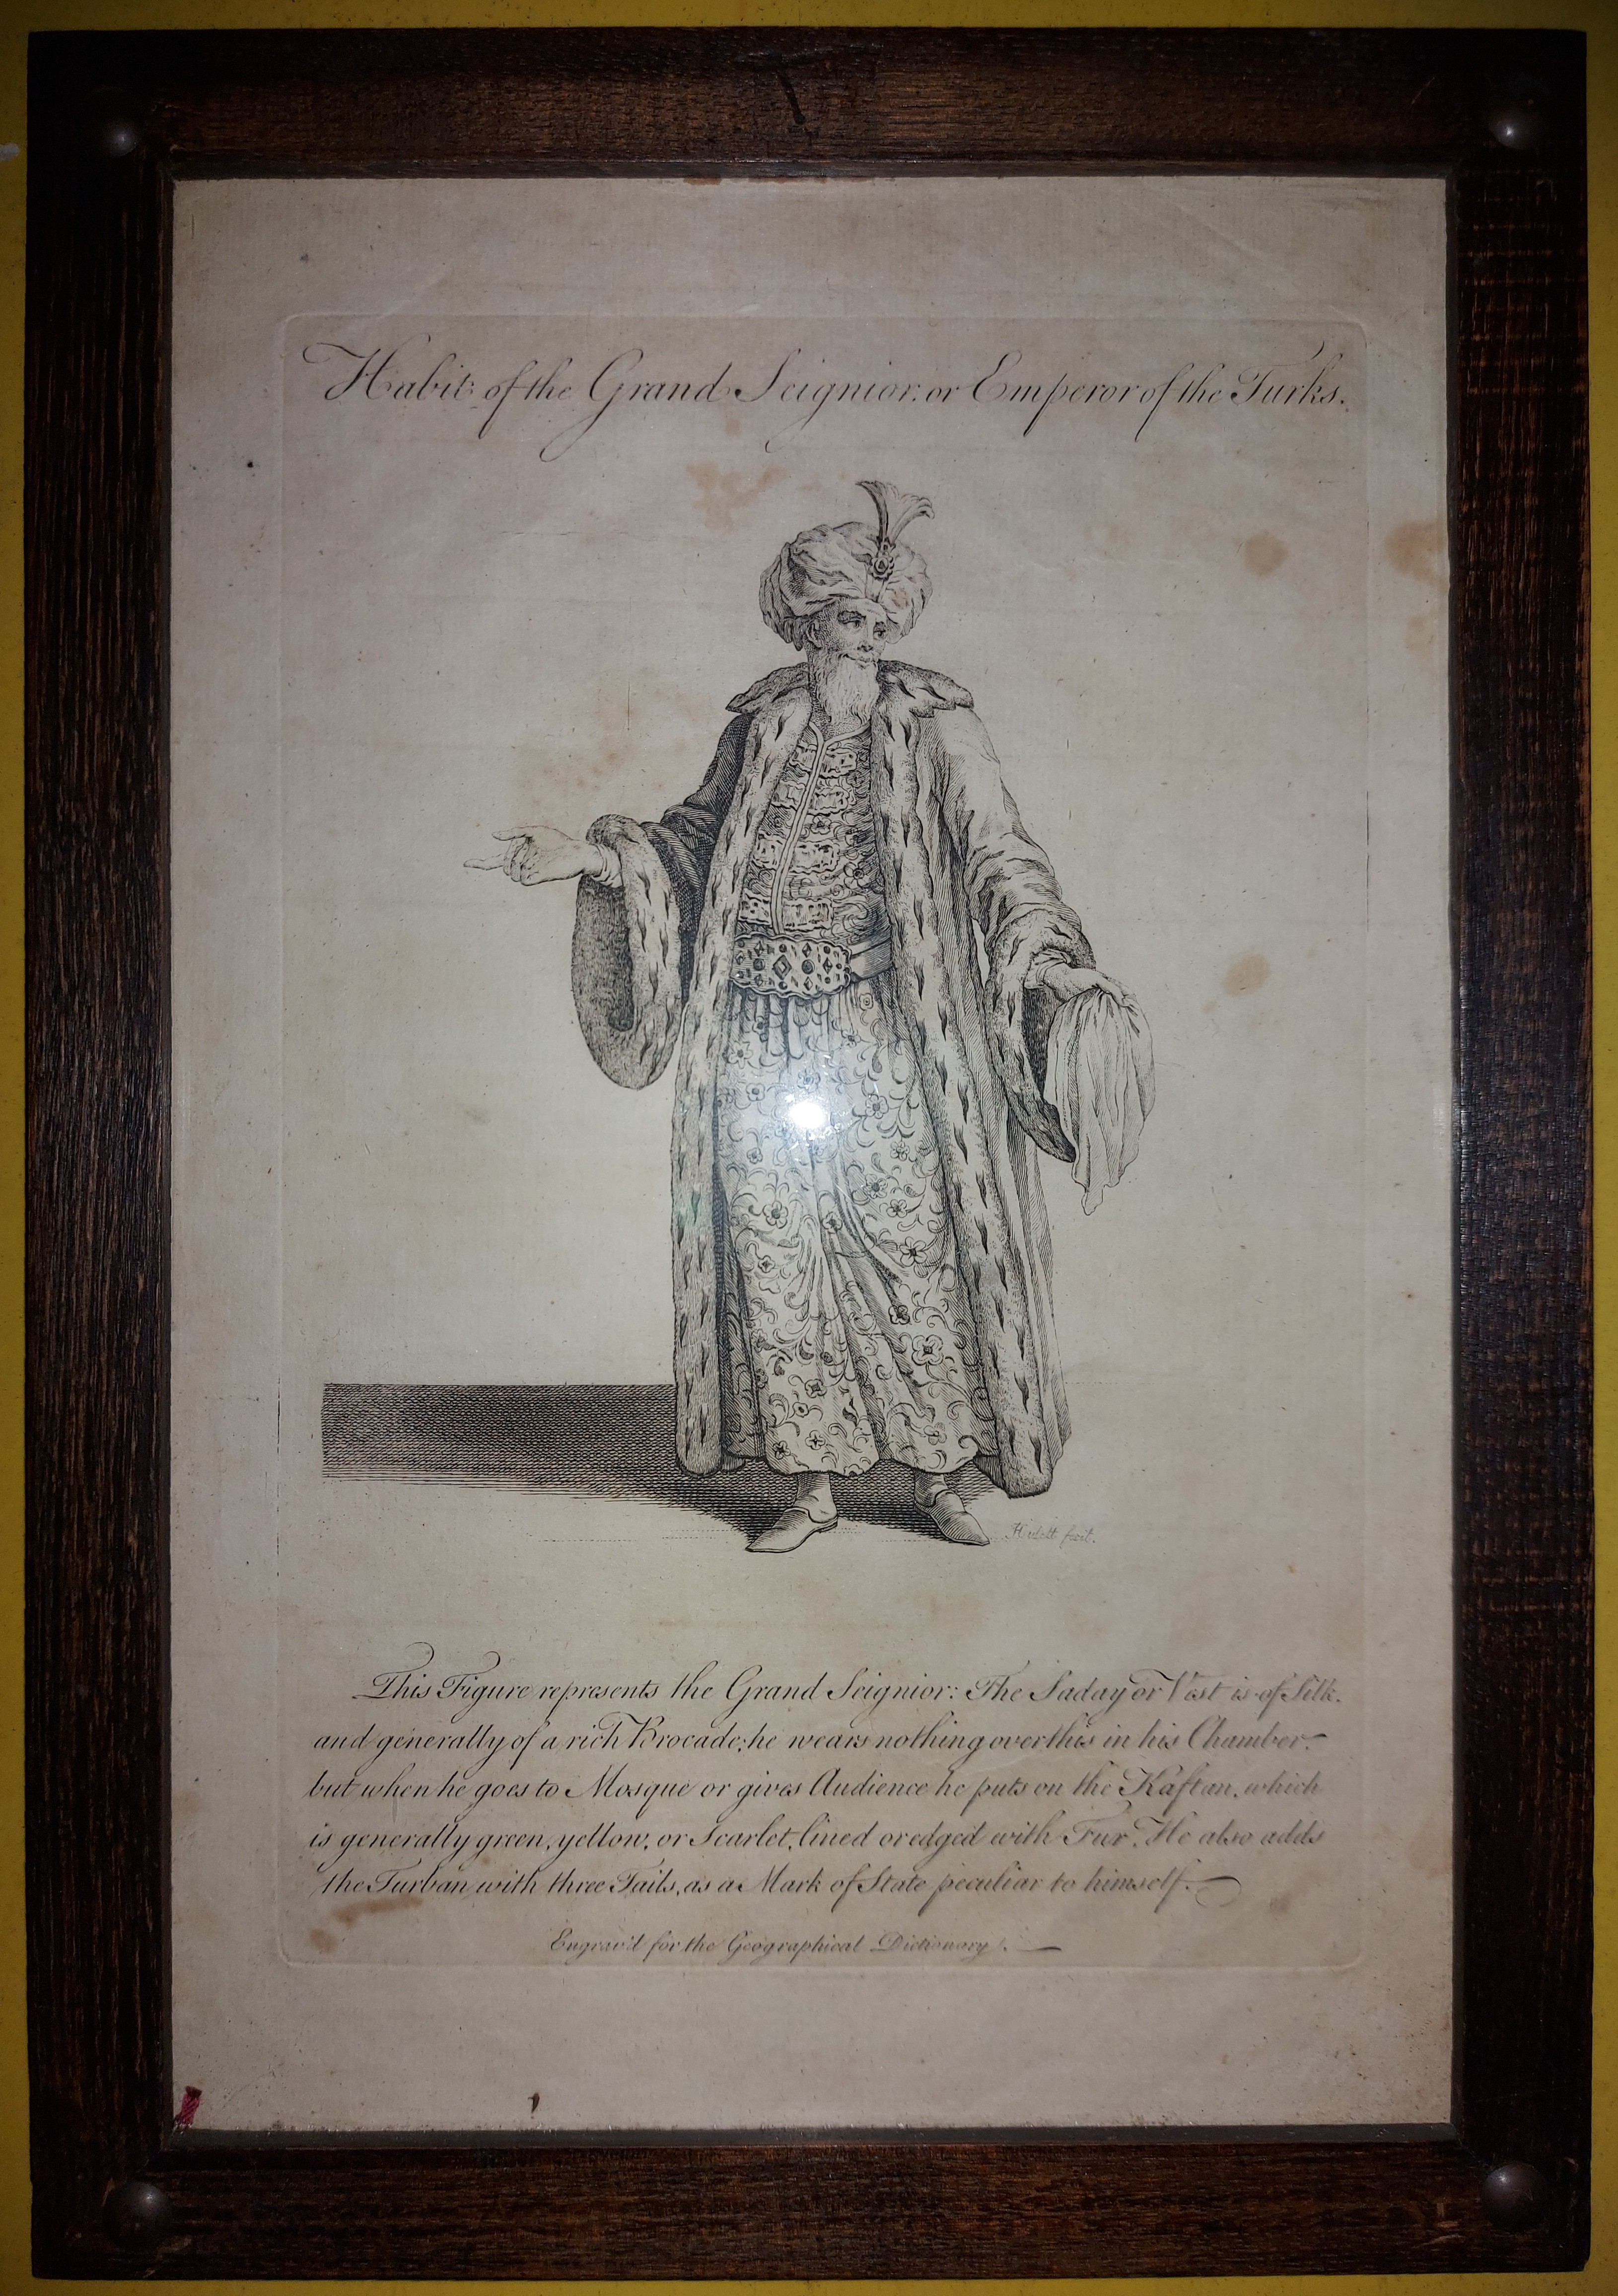 Habit of the Grand Seignior: or Emperor of the Turks.
fecit.
This Figure represents the Grand Seignior: The Saday or Vest is of Silk.
and generally of a rich Brocade; he wears nothing over this in his Chamber.
but when he goes to Mosque or gives Audience he puts on the Kaftan, which
is generally green, yellow, or Scarlet, lined or edged with Fur. He also adds
the Turban with three Tails, as a Mark of State peculiar to himself.
Engrav'd for the Geographical Dictionary.